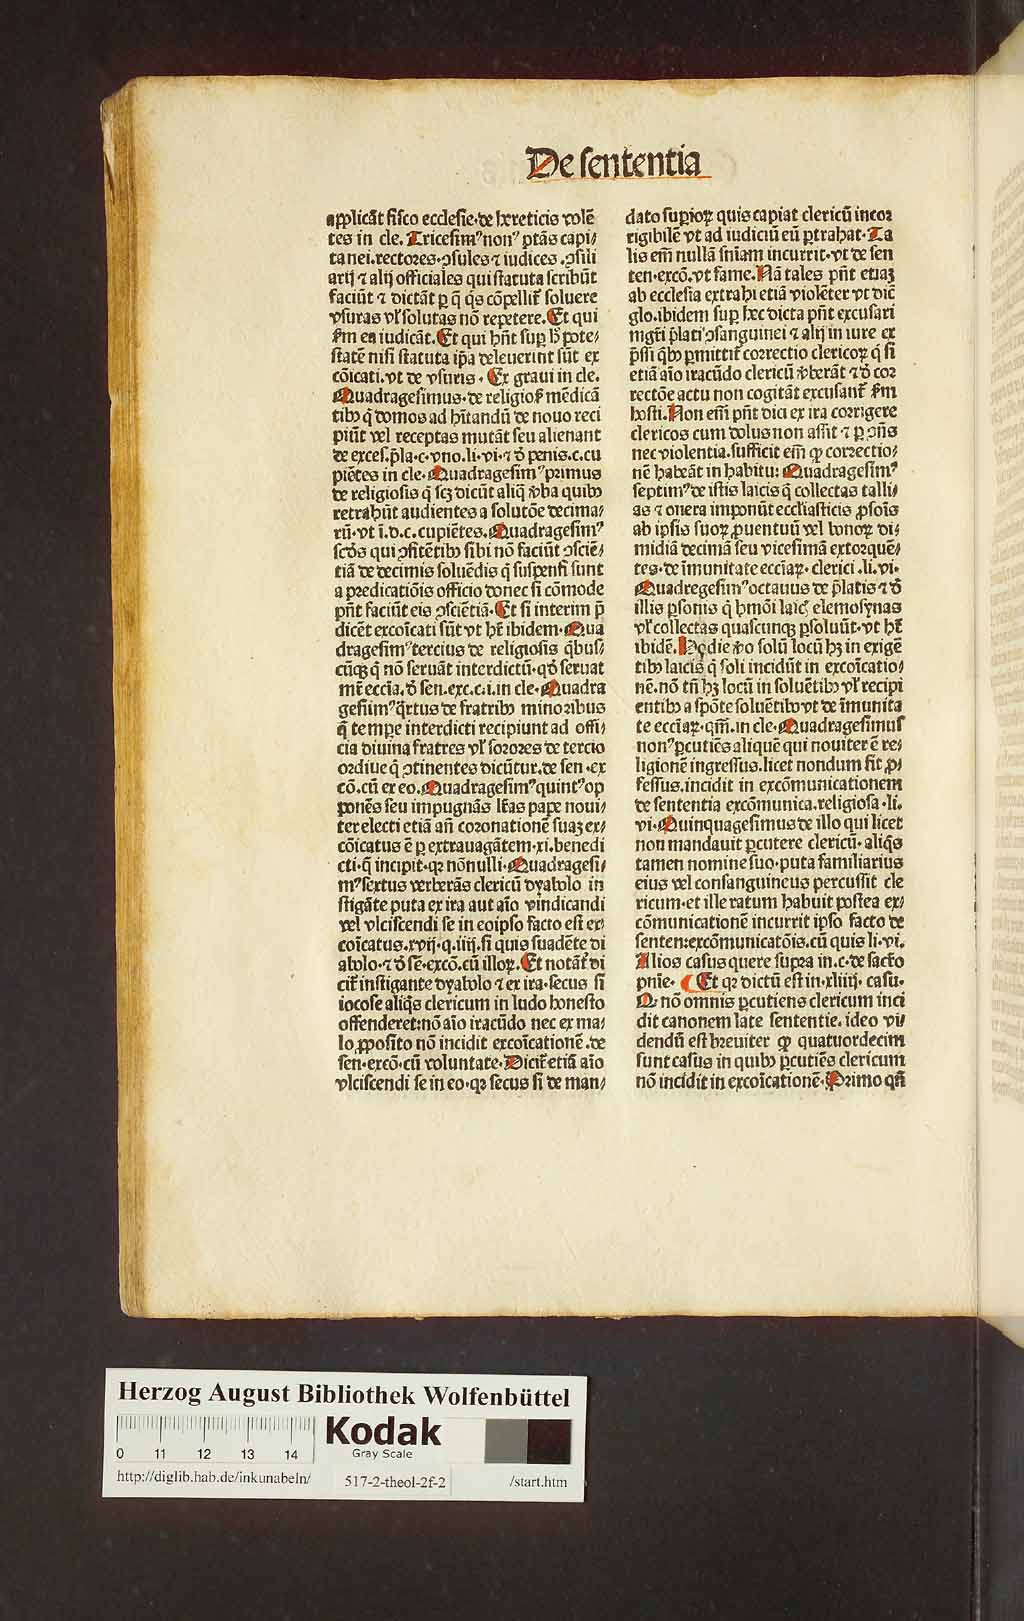 De sententia
applicāt fisco ecclesie·de hereticis volē
tes in cle. Tricesimꝰ nonꝰ ptās capi/
tanei.rectores.ꝯsules ⁊ iudices .ꝯsili
arij ⁊ alij officiales qui statuta scribūt
faciūt ⁊ dictāt ꝑ q̄ q̄s cōpellit᷑ soluere
vsuras vl᷑ solutas nō repetere. Et qui
fm ea iudicāt. Et qui hn̄t sup̱ pote/
statē nisi statuta ip̄a deleuerint sūt ex
cōicati.vt de vsuris · Ex graui in cle.
Quadragesimus·de religiosꝭ mēdicā
tibꝰ q̄ domos ad hītandū de nouo reci
piūt vel receptas mutāt seu alienant
de exces.p̄la.c.vno.li.vi.⁊ ð penis.c.cu
piētes in cle· Quadragesimꝰ primus
de religiosis q̄ scꝫ dicūt aliq̄ v̄ba quibꝰ
retrahūt audientes a solutōe decima/
rū·vt ī.d.c.cupiētes. Quadragesimꝰ
scd̄s qui ꝯfitētibꝰ sibi nō faciūt ꝯsciē/
tiā de decimis soluēdis q̄ suspensi sunt
a predicatiōis officio donec si cōmode
pn̄t faciūt eis ꝯsciētiā· Et si interim p̄
dicēt excoīcati sūt vt hr̄ ibidem· Qua
dragesimꝰ tercius de religiosis q̄bus/
cūqꝫ q̄ nō seruāt interdictū·qð seruat
mr̄ eccīa.ð sen.exc.c.i.in cle· Quadra
gesimꝰ q̄rtus de fratribꝰ minoribus
q̄ tempe interdicti recipiunt ad offi/
cia diuina fratres vl᷑ sorores de tercio
ordiue q̄ ꝯtinentes dicūtur.de sen·ex
cō.cū ex eo. Quadragesimꝰ quintꝰ op
ponēs seu impugnās lr̄as pape noui/
ter electi etiā an̄ coronationē suaꝫ ex/
cōicatus ē ꝑ extrauagātem·xi.benedi
cti·q̄ incipit·qꝛ nōnulli· Quadragesi/
mꝰ sextus verberās clericū dyabolo in
stigāte puta ex ira aut aīo vindicandi
vel vlciscendi se in eoipso facto est ex/
coīcatus.xvij·q.iiij.si quis suadēte di
abolo·⁊ ð sē·excō.cū illoꝝ. Et notāt᷑ di
cit᷑ instigante dyabolo ⁊ ex ira.secus si
iocose aliq̄s clericum in ludo honesto
offenderet:nō aīo iracūdo nec ex ma/
lo ꝓposito nō incidit excoīcationē.de
sen·excō·cū voluntate· Dicit᷑ etiā aīo
vlciscendi se in eo·qꝛ secus si de man/
dato supioꝝ quis capiat clericū incor
rigibilē vt ad iudiciū eū ꝑtrahat· Ta
lis em̄ nullā sn̄iam incurrit·vt de sen
ten·excō.vt fame. Nā tales pn̄t etiaꝫ
ab ecclesia extrahi etiā violēter vt dic̄
glo.ibidem sup hec dicta pn̄t excusari
mgr̄i p̄lati ꝯsanguinei ⁊ alij in iure ex
p̄ssi q̄bꝰ ꝑmittit᷑ correctio clericoꝝ q̄ si
etiā aīo iracūdo clericū v̄berāt ⁊ ð cor
rectōe actu non cogitāt excusant᷑ fm
hosti. Non em̄ pn̄t dici ex ira corrigere
clericos cum dolus non assit ⁊ ꝑ ꝯn̄s
nec violentia.sufficit em̄ ꝙ correctio/
nē habeāt in habitu: Quadragesimꝰ
septimꝰ de istis laicis q̄ collectas talli/
as ⁊ onera imponūt eccl̄iasticis ꝑsois̄
ab ipsis suoꝝ ꝓuentuū vel bonoꝝ di/
midiā decimā seu vicesimā extorquē/
tes·de īmunitate eccīaꝝ· clerici .li.vi·
Quadregesimꝰ octauus de p̄latis ⁊ ð
illis ꝑsonis q̄ hmōi laicꝭ elemosynas
vl᷑ collectas quascunqꝫ ꝑsoluūt·vt hr̄
ibidē. Hodie v̄o solū locū hꝫ in exigē
tibꝰ laicis q̄ soli incidūt in excoīcatio/
nē.nō tn̄ hꝫ locū in soluētibꝰ vl᷑ recipi
entibꝰ a spōte soluētibꝰ vt de īmunita
te eccīaꝝ·qm̄.in cle· Quadragesimus
nonꝰ ꝑcutiēs aliquē qui nouiter ē re/
ligionē ingressus.licet nondum sit ꝓ/
fessus.incidit in excōmunicationem
de sententia excōmunica.religioso·li.
vi· Quinquagesimus de illo qui licet
non mandauit ꝑcutere clericū· aliq̄s
tamen nomine suo·puta familiarius
eius vel consanguineus percussit cle
ricum·et ille ratum habuit postea ex/
cōmunicationē incurrit ipso facto de
senten:excōmunicatōis.cū quis li.vi.
Alios casus quere supra in.c·de sacr̄o
pnīe· Et qꝛ dictū est in·xliiij· casu·
Q̵ nō omnis ꝑcutiens clericum inci
dit canonem late sententie. ideo vi/
dendū est breuiter ꝙ quatuordecim
sunt casus in quibꝰ ꝑcutiēs clericum
nō incidit in excoīcationē· Primo qn̄
Herzog August Bibliothek Wolfenbüttel
0 11 12 13 14
Kodak
Gray Scale
http://diglib.hab.de/inkunabeln/ 517-2-theol-2f-2 /start.htm